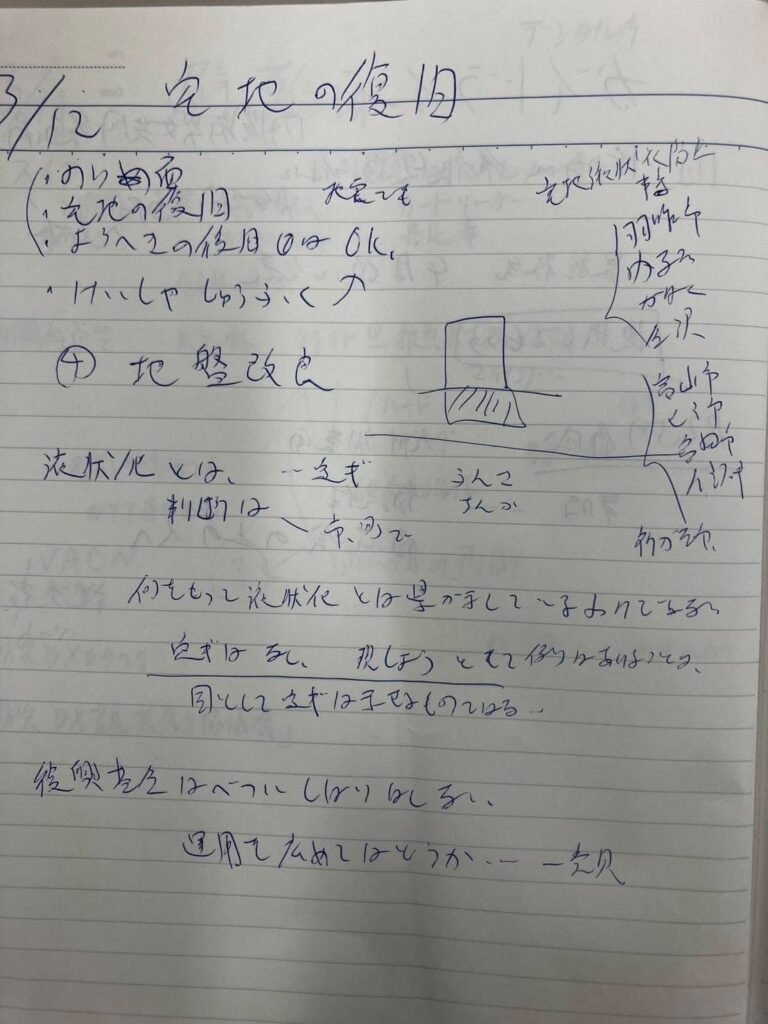 3/12 宅地の復旧
・のり面
・宅地の復旧
・ようへきの復旧 はOK、
・けいしゃしゅうふく
地震でも
宅地液状化防止
羽咋市
内灘
かほく
金沢
⊕ 地盤改良
富山市
氷見市
高岡市
新潟市、
液状化とは、一定ぎ
判断は 市、町で
何をもって液状化とは県が示しているわけでない
定ぎはなし、現しょうとして例はあげることは、
国として定ぎは示せるものではな
復興基金はべつにしばりはしない、
運用を広めてはどうか、ー